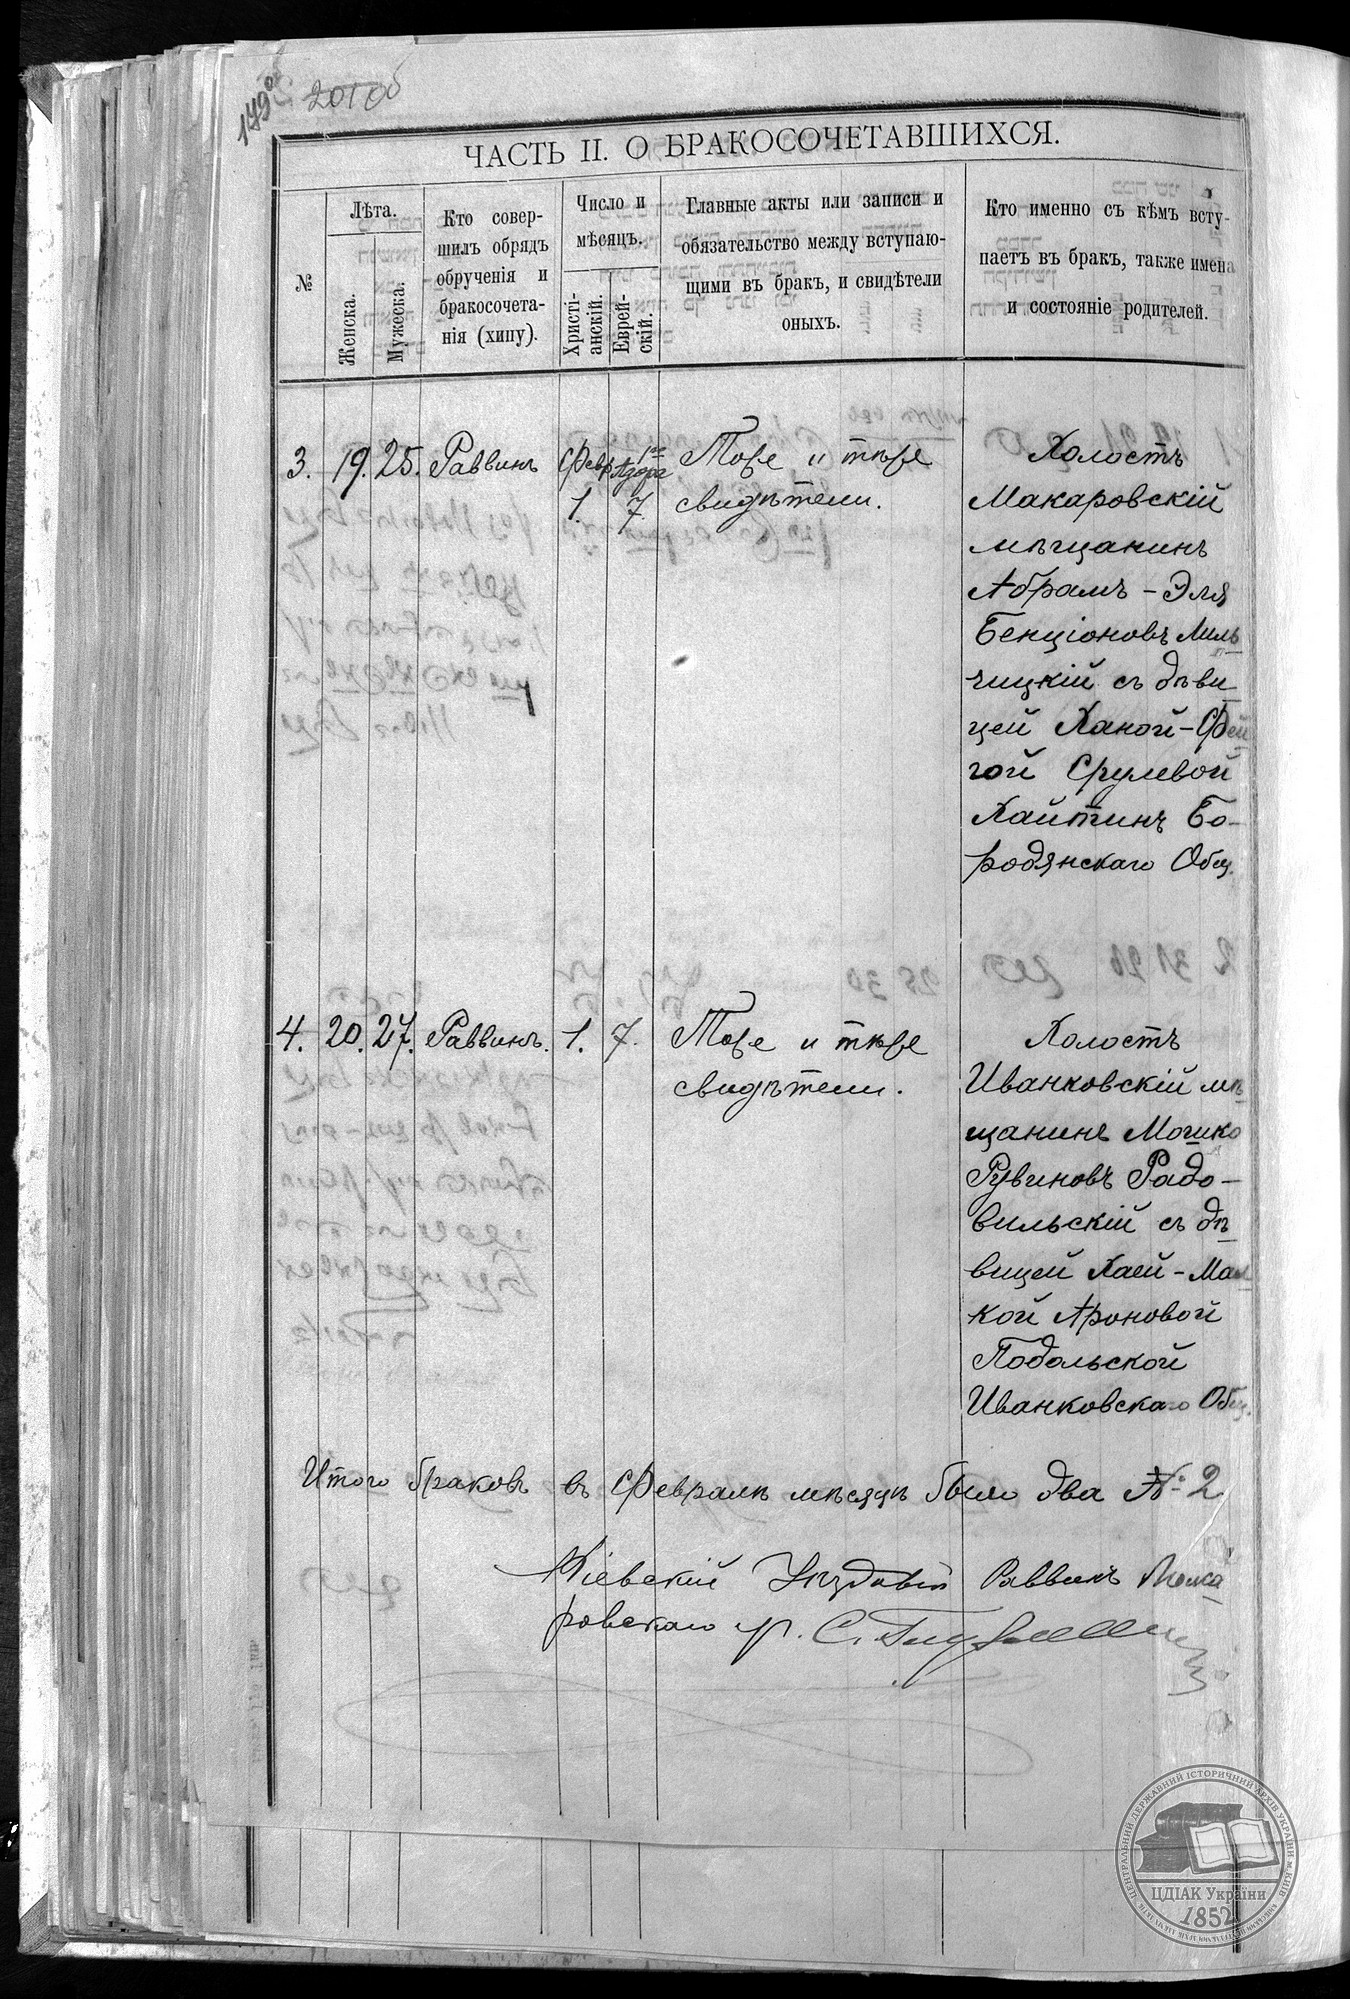 201 об
ЧАСТЬ II. О БРАКОСОЧЕТАВШИХСЯ.
№
Лѣта.
Женска.
Мужеска.
Кто совер-
шилъ обрядъ
обрученія и
бракосочета-
нія (хипу).
Число и
мѣсяцъ.
Христі-
анскій.
Еврей-
скій.
Главные акты или записи и
обязательство между вступаю-
щими въ бракъ, и свидѣтели
оныхъ.
Кто именно съ кѣмъ всту-
паетъ въ бракъ, также имена
и состояніе родителей.
3. 19. 25. Раввинъ Февр 1го Адора
1. 7.
Тоже и тѣже
свидѣтели.
Холостъ
Макаровскій
мѣщанинъ
Абрамъ-Эля
Бенціоновъ Миль
чицкій съ дѣви
цей Ханой-Фей
гой Срулевой
Хайтинъ Бо-
родянскаго Общ.
4. 20. 27. Раввинъ. 1. 7.
Тоже и тѣже
свидѣтели.
Холостъ
Иванковскій мѣ
щанинъ Мошко
Рувиновъ Радо-
вильскій съ дѣ
вицей Хаей-Мал
кой Ароновой
Подольской
Иванковскаго Общ.
Итого браковъ въ Февралѣ мѣсяцѣ было два № 2
Кіевскій Уѣздный Раввинъ Мака
ровскаго р. С.
ЦЕНТРАЛЬНИЙ ДЕРЖАВНИЙ ІСТОРИЧНИЙ АРХІВ УКРАЇНИ м. КИЇВ
ЦДІАК України
1852